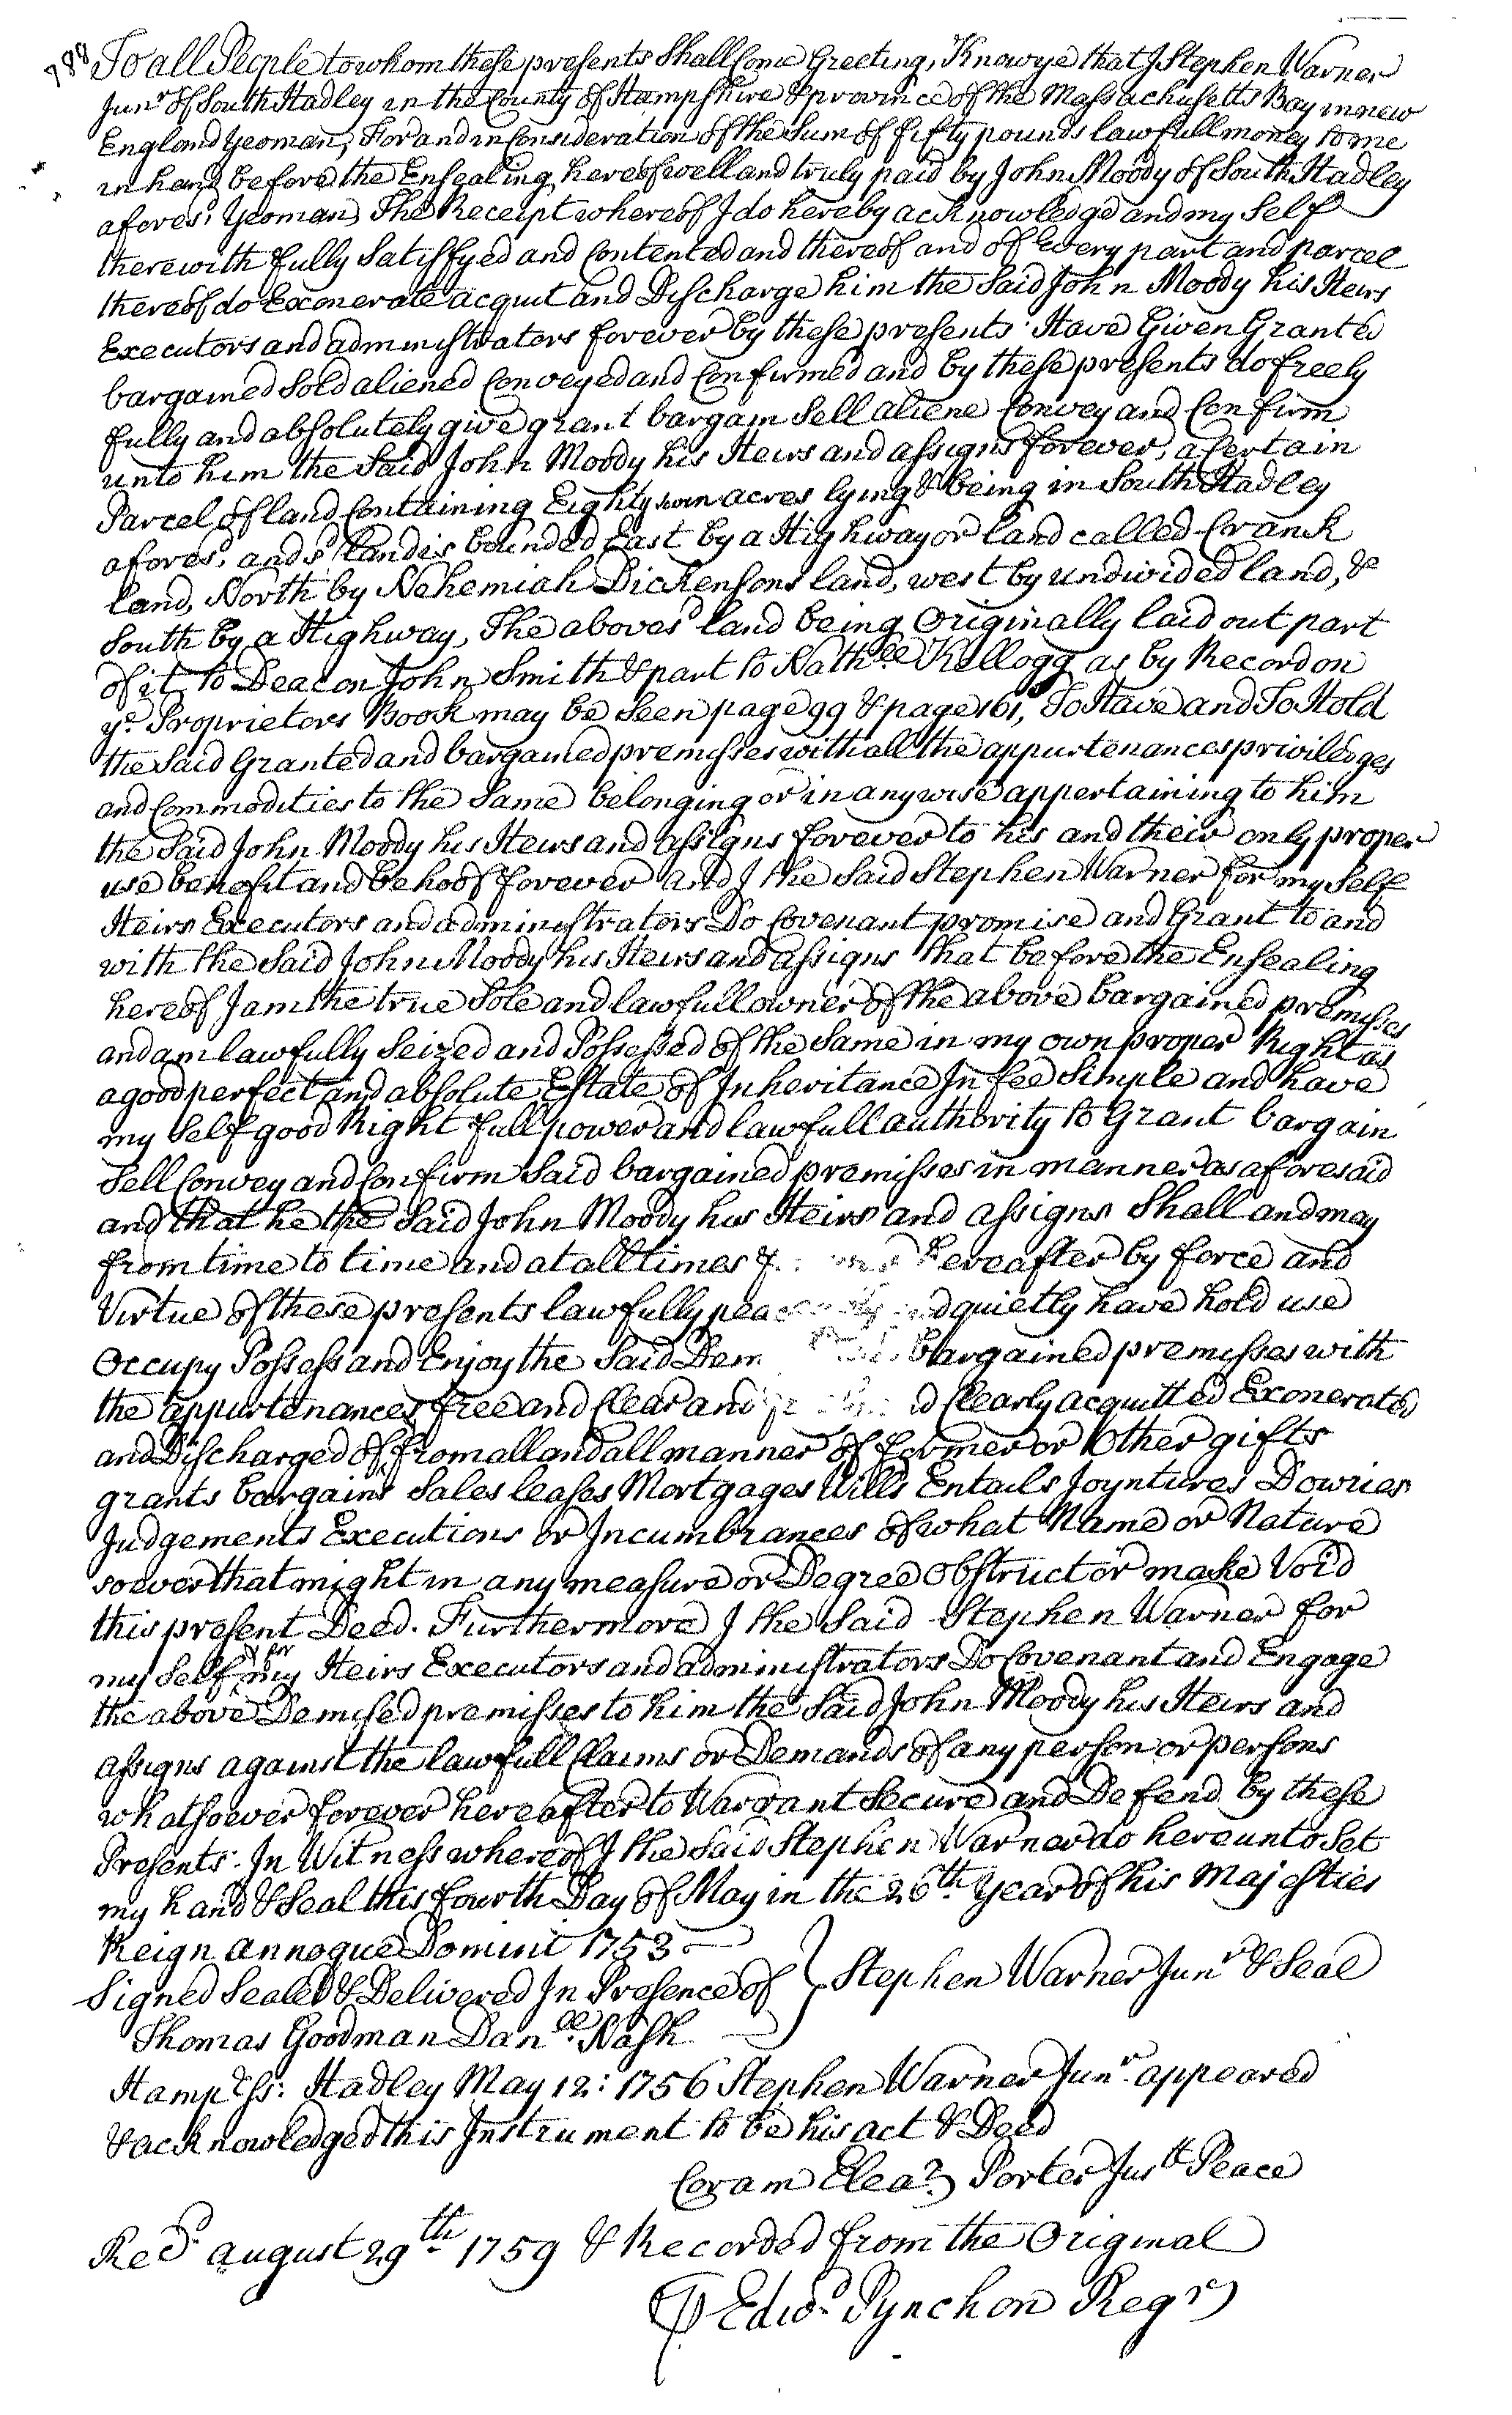 788 To all People to whom these presents Shall Come Greeting, Know ye that I Stephen Warner
Junr of South Hadley in the County of Hampshire & province of the Massachusetts Bay in new
England Yeoman, For and in Consideration of the Sum of fifty pounds lawfull money to me
in hand before the Ensealing hereof well and truly paid by John Moody of South Hadley
afores.d Yeoman, The Receipt whereof I do hereby acknowledge and my Self
therewith fully Satisfyed and Contented and thereof and of Every part and parcel
thereof do Exonerate acquit and Discharge him the Said John Moody his Heirs
Executors and administrators forever by these presents. Have Given Granted
bargained Sold aliened Conveyed and Confirmed and by these presents do freely
fully and absolutely give grant bargain Sell aliene Convey and Confirm
unto him the Said John Moody his Heirs and assigns forever, a Certain
Parcel of land Containing Eighty acres lying & being in South Hadley
afores.d and s.d land is bounded East by a Highway or land called Crank
land, North by Nehemiah Dickensons land, west by undivided land, &
South by a Highway, The aboves.d land being Originally laid out part
of it to Deacon John Smith & part to Nath.ll Kellogg as by Record on
y.e Proprietors Book may be Seen page 99 & page 161, To Have and To Hold
the Said Granted and bargained premisses with all the appurtenances priviledges
and Commodities to the Same belonging or in any wise appertaining to him
the Said John Moody his Heirs and assigns forever to his and their only proper
use benefit and behoof forever and I the Said Stephen Warner for my Self
Heirs Executors and administrators Do Covenant promise and Grant to and
with the Said John Moody his Heirs and assigns that before the Ensealing
hereof I am the true Sole and lawfull owner of the above bargained premisses
and am lawfully Seized and Possessed of the Same in my own proper Right as
a good perfect and absolute Estate of Inheritance In fee Simple and have
my Self good Right full power and lawfull authority to Grant bargain
Sell Convey and Confirm Said bargained premisses in manner as aforesaid
and that he the Said John Moody his Heirs and assigns Shall and may
from time to time and at all times hereafter by force and
Virtue of these presents lawfully quietly have hold use
Occupy Possess and Enjoy the Said bargained premisses with
the appurtenances free and Clear and Clearly acquitted Exonerated
and Discharged of from all and all manner of former or Other gifts
grants bargains Sales leases Mortgages Wills Entails Joyntures Dowries
Judgements Executions or Incumbrances of what Name or Nature
soever that might in any measure or Degree obstruct or make Void
this present Deed. Furthermore I the Said Stephen Warner for
my Self & for my Heirs Executors and administrators Do Covenant and Engage
the above Demised premisses to him the Said John Moody his Heirs and
assigns against the lawfull Claims or Demands of any person or persons
whatsoever forever hereafter to Warrant Secure and Defend by these
Presents. In Witness whereof I the Said Stephen Warner do hereunto Set
my hand & Seal this fourth Day of May in the 26th Year of his Majesties
Reign annoque Domini 1753
Signed Sealed & Delivered In Presence of } Stephen Warner Junr & Seal
Thomas Goodman Dan.ll Nash
Hampr Ss: Hadley May 12: 1756 Stephen Warner Junr. appeared
& acknowledged this Instrument to be his act & Deed
Coram Elea.r Porter Just Peace
Recd. august 29th. 1759 & Recorded from the Original
P Edwd. Pynchon Regr